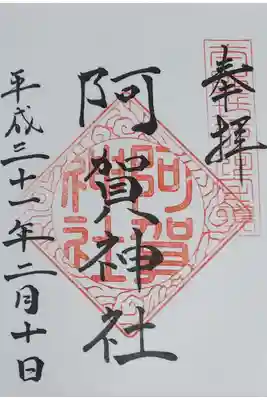 奉拝
阿賀神社
阿賀
神社
平成三十一年二月十日